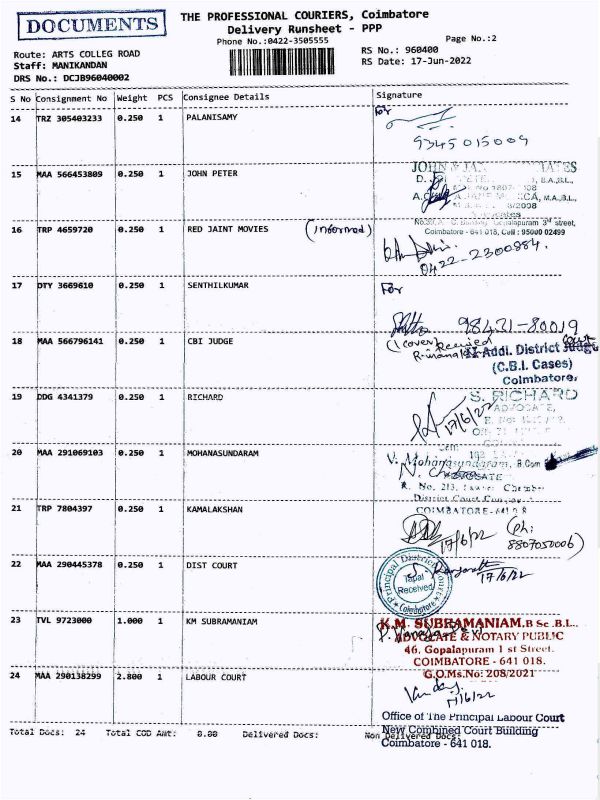 DOCUMENTS
THE PROFESSIONAL COURIERS, Coimbatore
Delivery Runsheet - PPP
Phone No.:0422-3505555
Page No.:2
Route: ARTS COLLEG ROAD
RS No.: 960400
Staff: MANIKANDAN
RS Date: 17-Jun-2022
DRS No.: DCJB96040002
S No Consignment No Weight PCS Consignee Details Signature
14 TRZ 305403233 0.250 1 PALANISAMY For
9345015009
15 MAA 566453809 0.250 1 JOHN PETER
JOHN &
16 TRP 4659720 0.250 1 RED JAINT MOVIES (informed)
Coimbatore - 641 018, Cell : 95000 02499
0422-2300884.
17 DTY 3669610 0.250 1 SENTHILKUMAR For
98431-80019
18 MAA 566796141 0.250 1 CBI JUDGE
(1 cover) Received
Addl. District Judge
(C.B.I. Cases)
Coimbatore.
19 DDG 4341379 0.250 1 RICHARD
S. RICHARD
ADVOCATE,
17/6/22
20 MAA 291069103 0.250 1 MOHANASUNDARAM
V. Mohanasundaram, B.Com
ADVOCATE
R. No. 213, Lawer Chamber
District Court
COIMBATORE-641018
21 TRP 7804397 0.250 1 KAMALAKSHAN
17/6/22 (Ph: 8807050006)
22 MAA 290445378 0.250 1 DIST COURT
Principal District Court
Tapal
Received
Coimbatore
17/6/22
23 TVL 9723000 1.000 1 KM SUBRAMANIAM
K.M. SUBRAMANIAM, B Sc .B.L.,
ADVOCATE & NOTARY PUBLIC
46, Gopalapuram 1 st Street.
COIMBATORE - 641 018.
G.O.Ms.No: 208/2021
24 MAA 290138299 2.800 1 LABOUR COURT
17/6/22
Office of The Principal Labour Court
New Combined Court Building
Coimbatore - 641 018.
Total Docs: 24 Total COD Amt: 0.00 Delivered Docs: Non Delivered Docs: